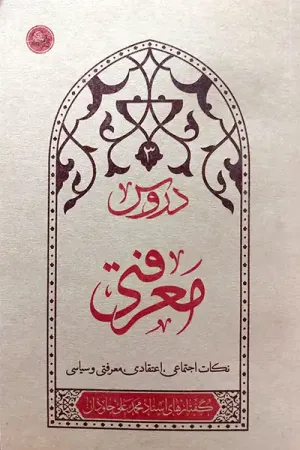 ۳
دروس
معرفتی
نکات اجتماعی، اعتقادی، معرفتی و سیاسی
گفتارهای استاد محمدعلی جاودان